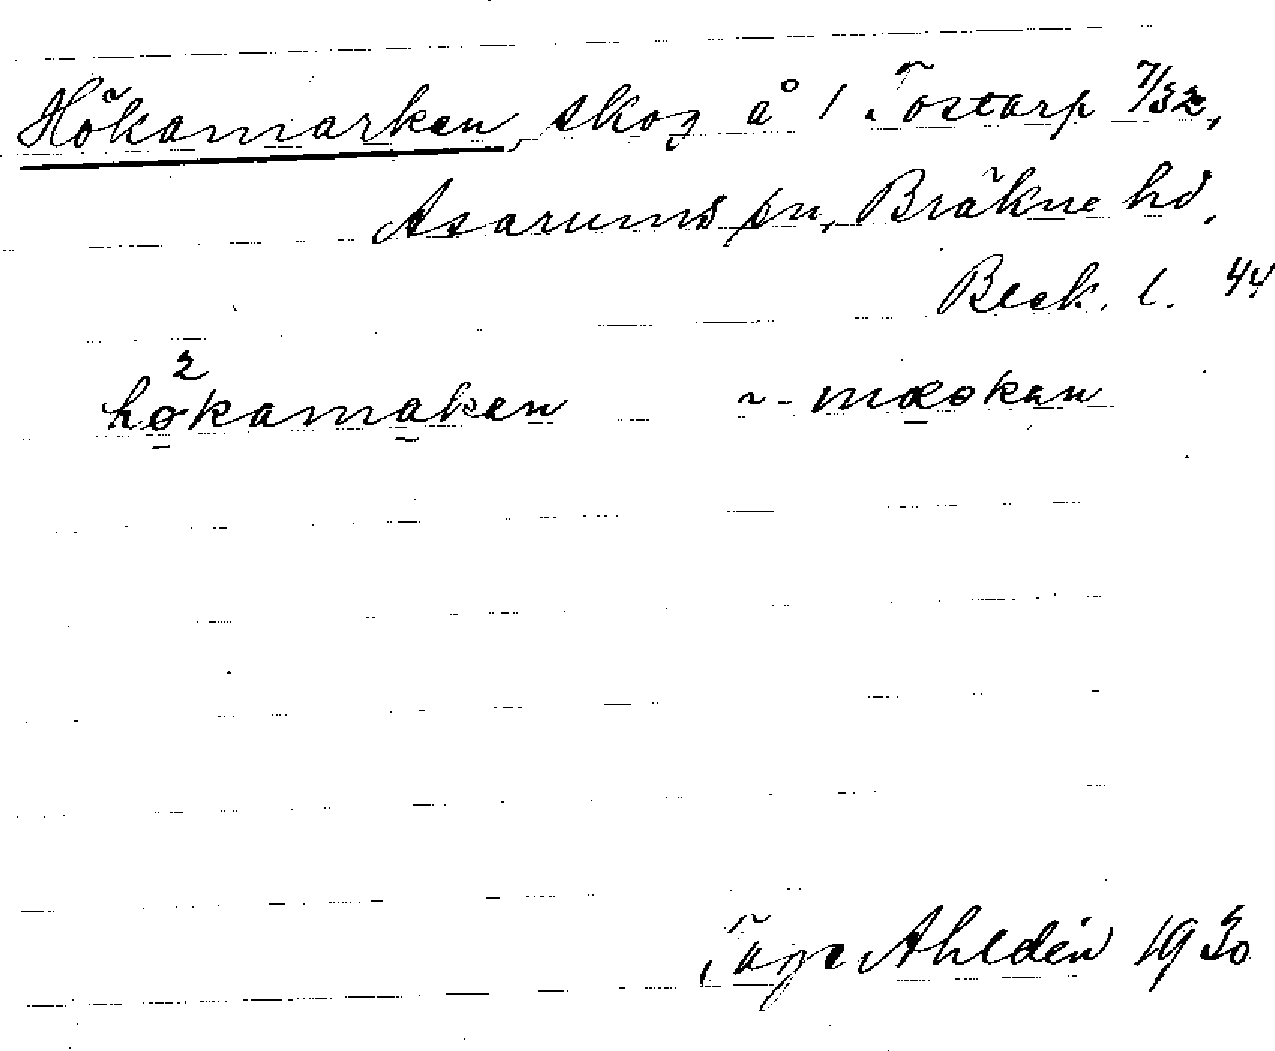 Hökamarken, skog å 1 Tostarp 7/32,
Asarums sn, Bräkne hd.
Beck. l. 44
hö²kamaken ~-mæokan
Tage Ahldén 1930